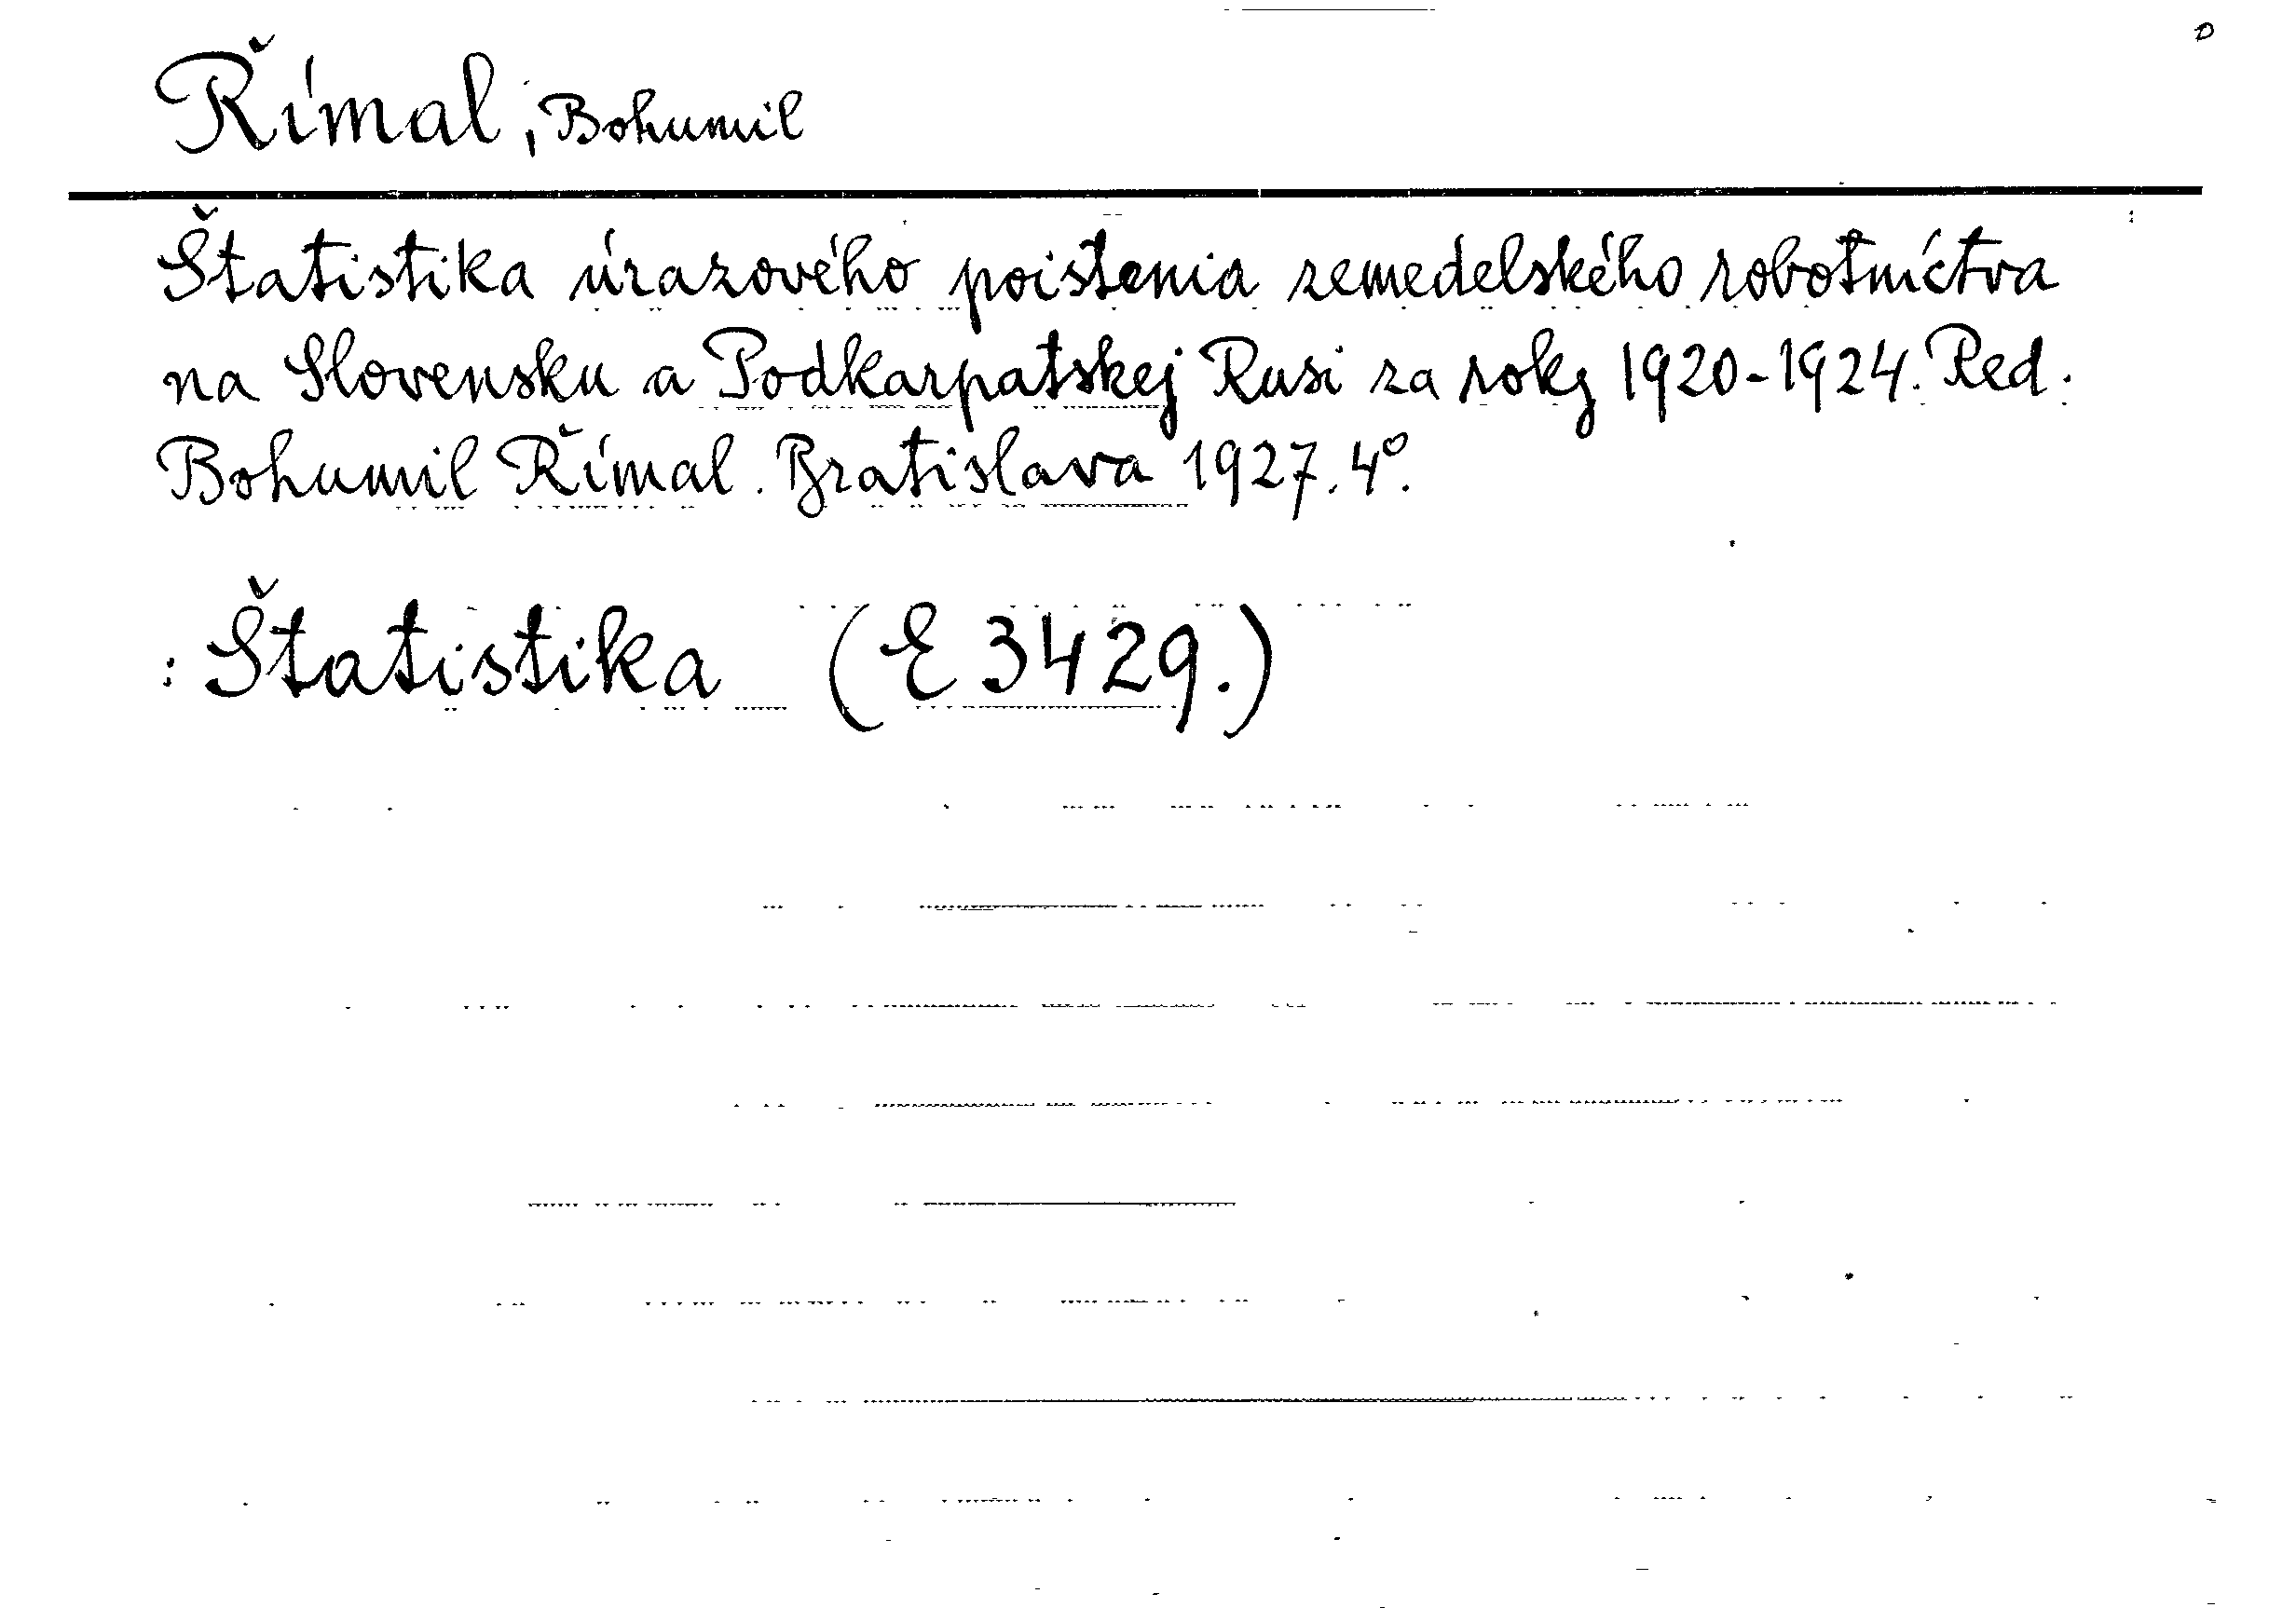 Římal, Bohumil
Štatistika úrazového poistenia zemedelského robotníctva
na Slovensku a Podkarpatskej Rusi za roky 1920-1924. Red.
Bohumil Římal. Bratislava 1927. 4°.
: Štatistika (E 3429.)